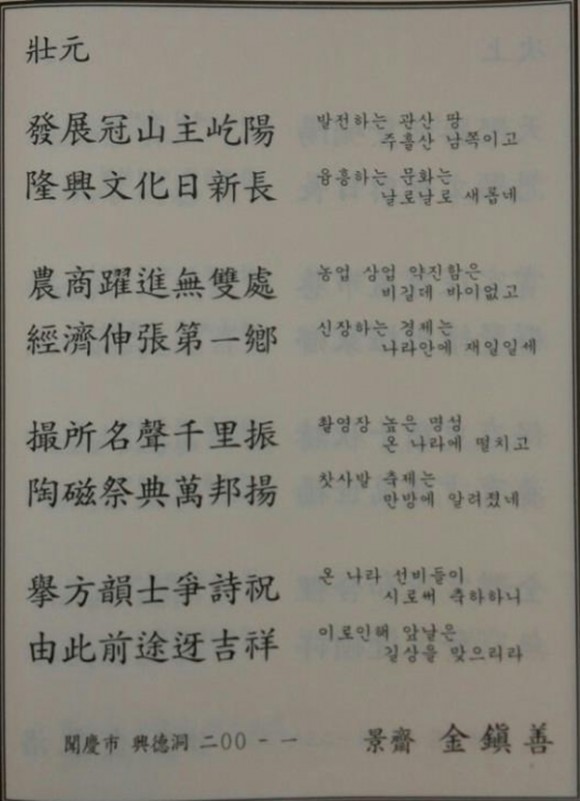 壯元
發展冠山主屹陽
발전하는 관산 땅
주흘산 남쪽이고
隆興文化日新長
융흥하는 문화는
날로날로 새롭네
農商躍進無雙處
농업 상업 약진함은
비길데 바이없고
經濟伸張第一鄉
신장하는 경제는
나라안에 재일일세
撮所名聲千里振
촬영장 높은 명성
온 나라에 떨치고
陶磁祭典萬邦揚
찻사발 축제는
만방에 알려졌네
擧方韻士爭詩祝
온 나라 선비들이
시로써 축하하니
由此前途迓吉祥
이로인해 앞날은
길상을 맞으리라
聞慶市 興德洞 二00 - 一 景齋 金鎭善